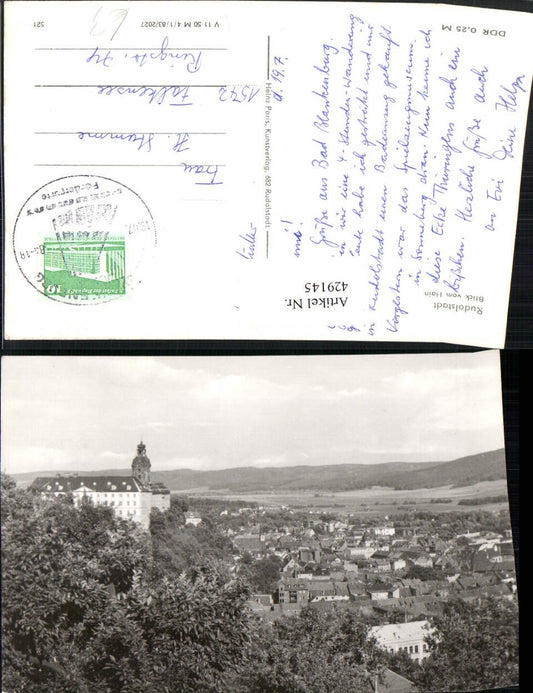 Rudolstadt
Blick vom Hain
DDR 0,25 M
d. 19.7.
Grüße aus Bad Blankenburg.
wir eine 4-Stunden-Wanderung
habe ich gestreikt und mir
in Rudolstadt einen Badeanzug gekauft.
Vorgestern war das Spielzeugmuseum
in Sonneberg dran. Nun kenne ich
diese Ecke Thüringens auch ein
bißchen. Herzliche Grüße auch
an Evi Deine Helga
Heinz Pöris, Kunstverlag, 682 Rudolstadt
Artikel Nr.
429145
V 11 50 M 4/1/83/2027
521
63
Frau
H. Stamme
1542 Falkensee
Ringstr.
10